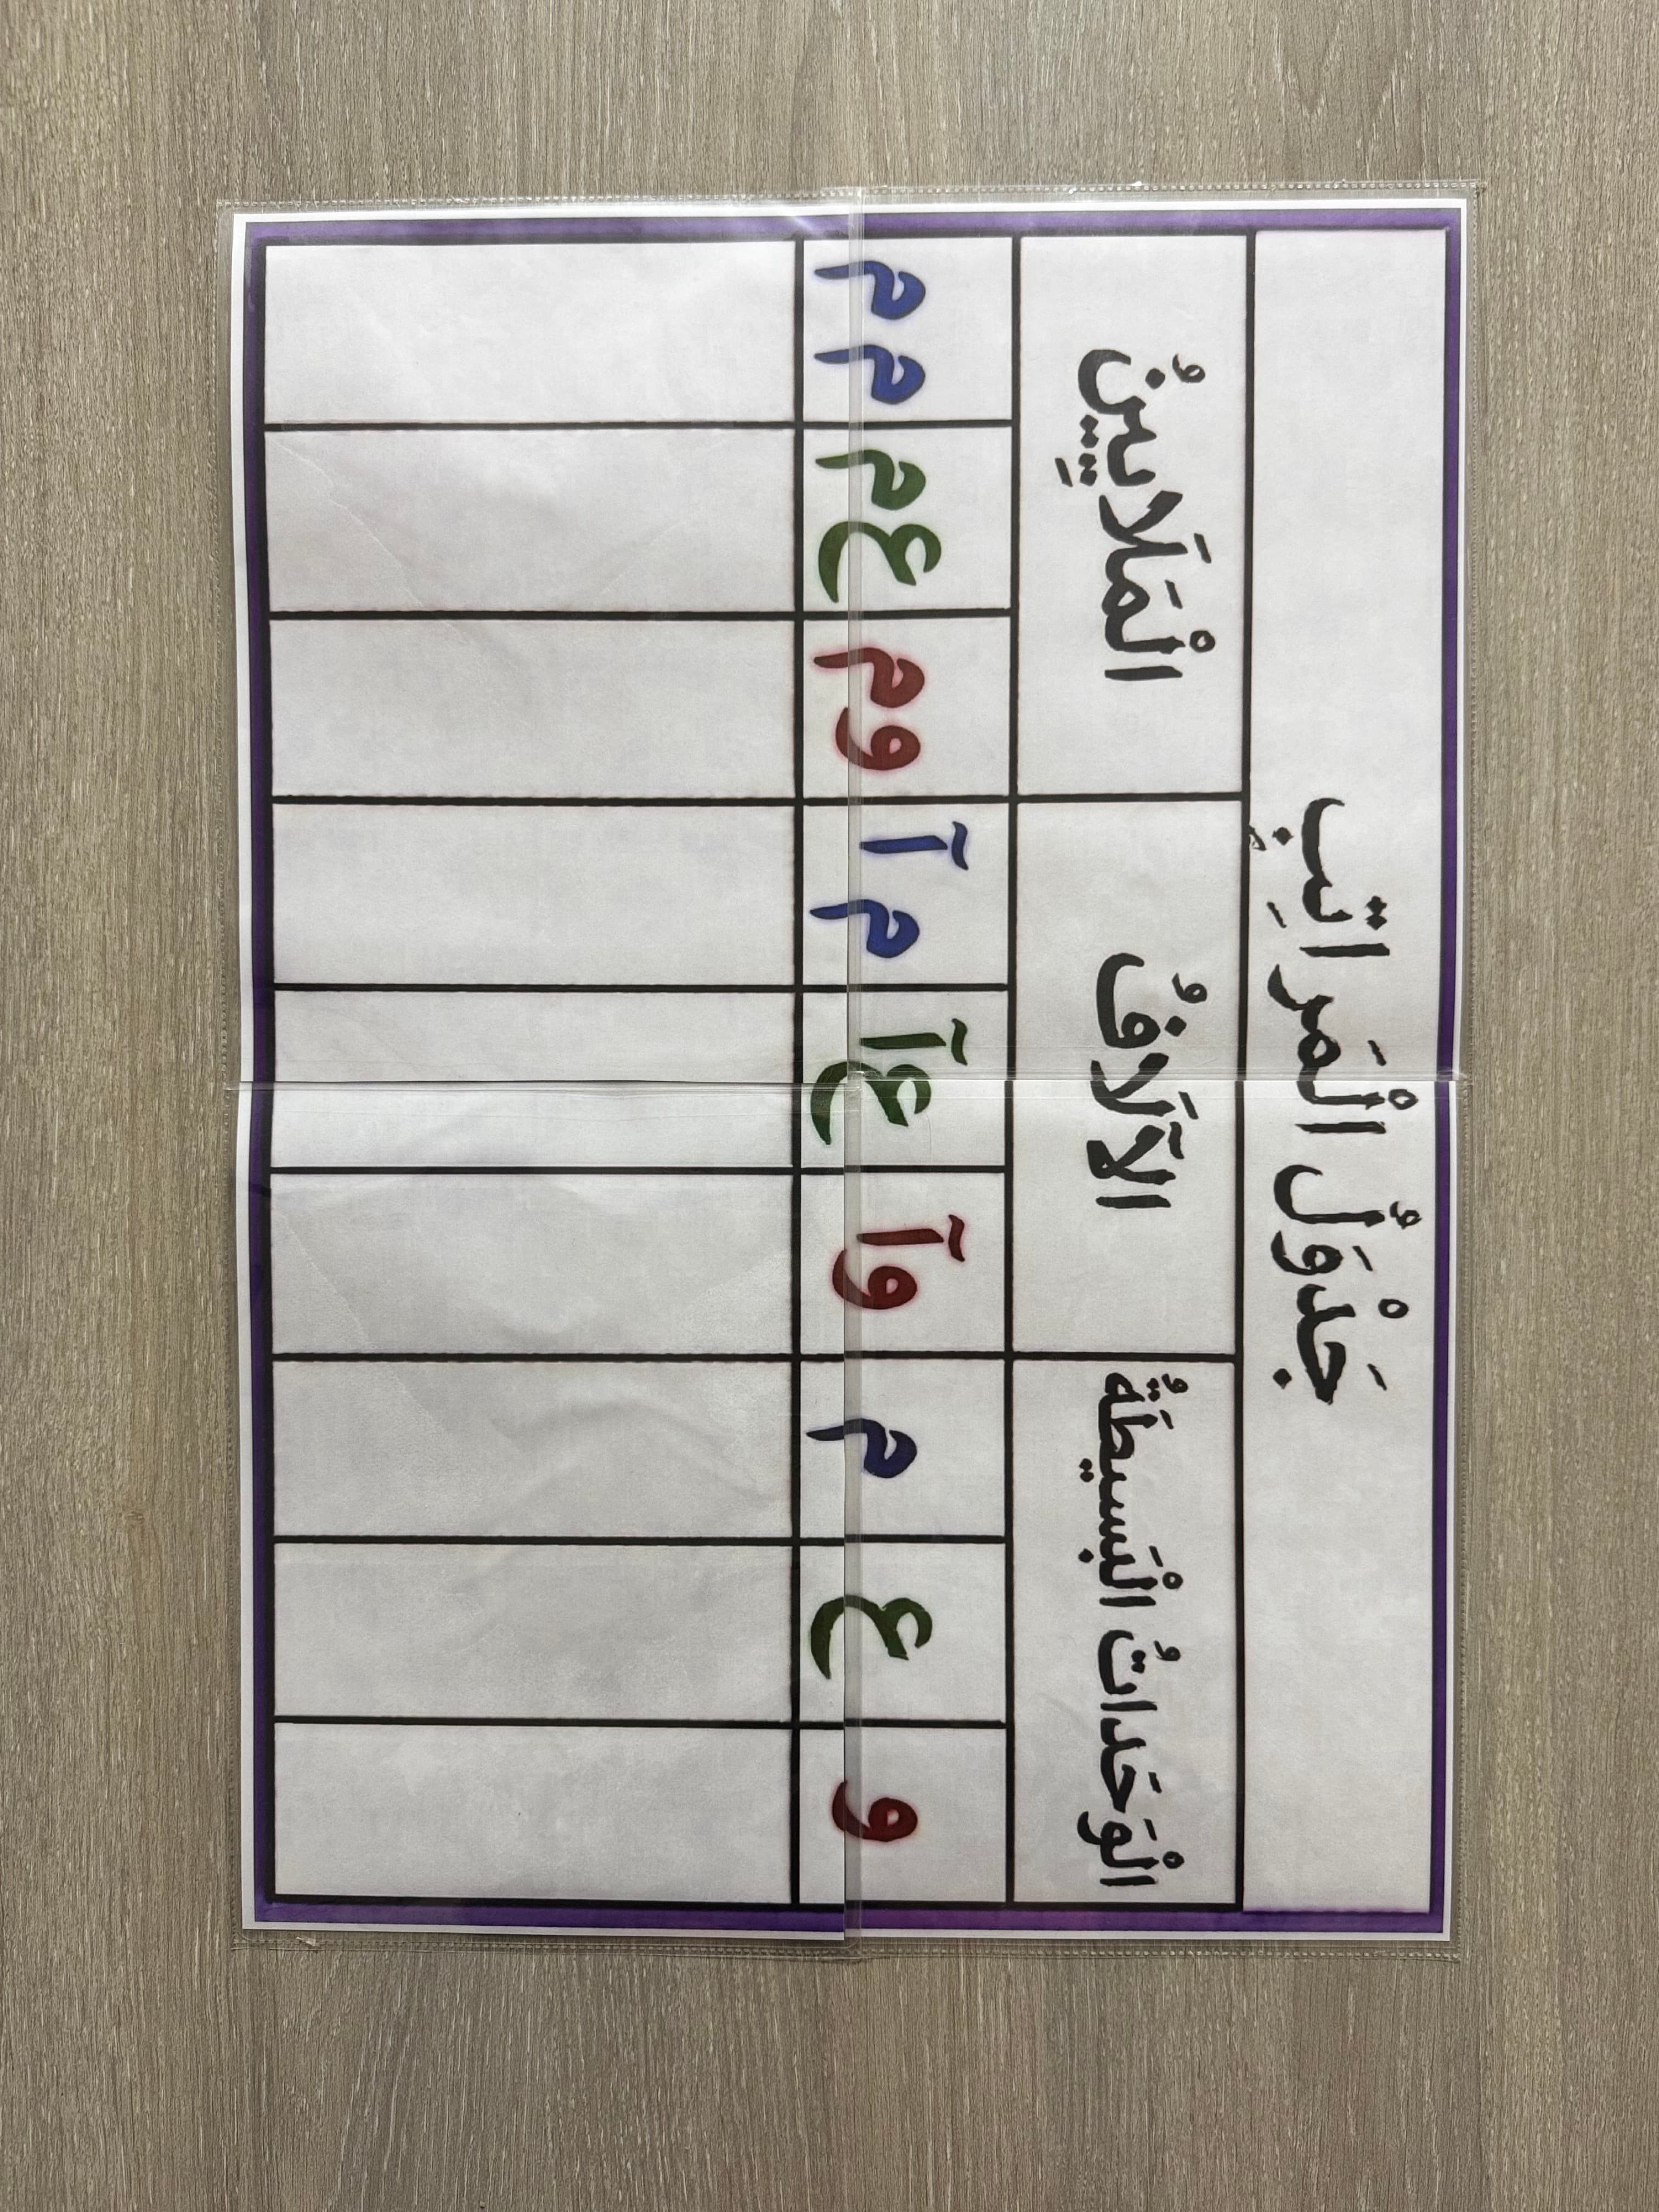 جَدْوَلُ الْمَراتِبِ
الْوَحَداتُ الْبَسيطَةُ الآلَافُ الْمَلَايِينُ
و ع م وآ عآ م آ وم عم م م